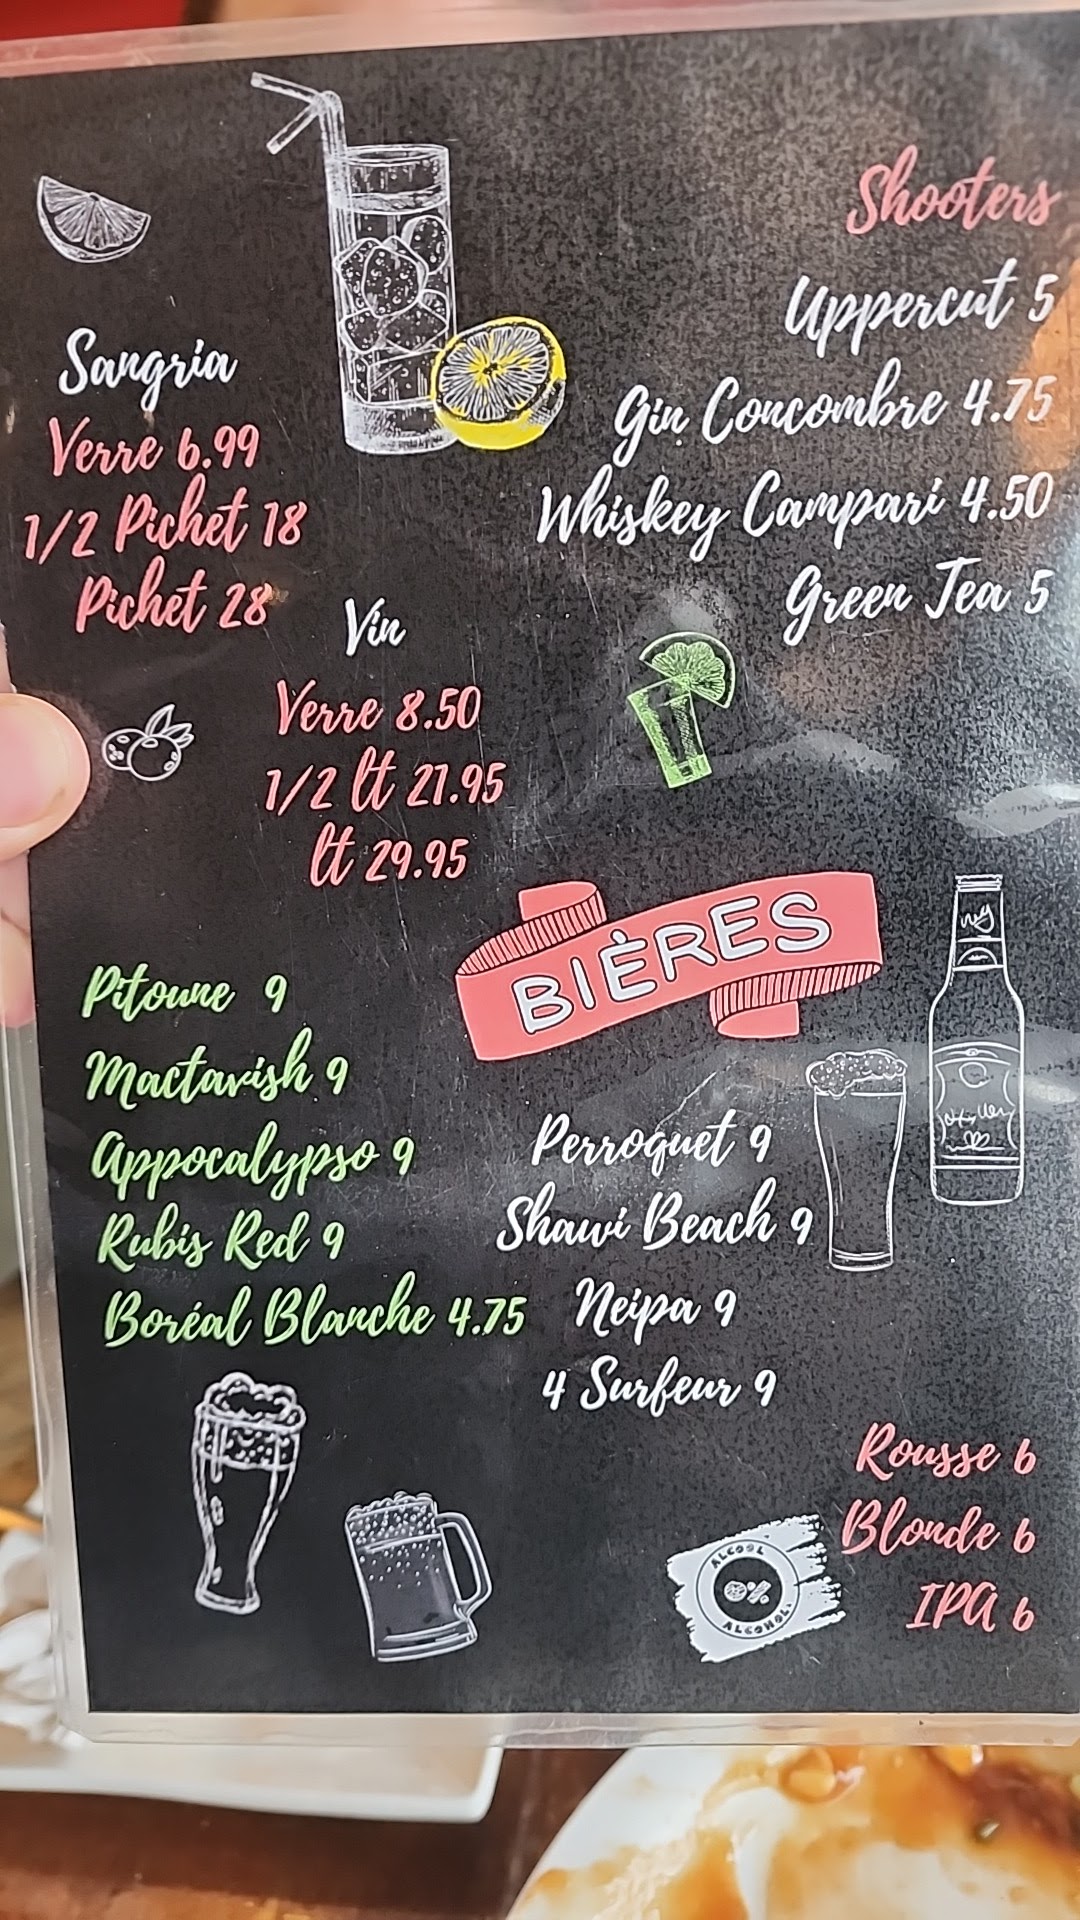 Shooters
Uppercut 5
Gin Concombre 4.75
Whiskey Campari 4.50
Green Tea 5
Sangria
Verre 6.99
1/2 Pichet 18
Pichet 28
Vin
Verre 8.50
1/2 lt 21.95
lt 29.95
BIÈRES
Pitoune 9
Mactavish 9
Appocalypso 9
Rubis Red 9
Boréal Blanche 4.75
Perroquet 9
Shawi Beach 9
Neipa 9
4 Surfeur 9
Rousse 6
Blonde 6
IPA 6
ALCOOL
0%
ALCOHOL